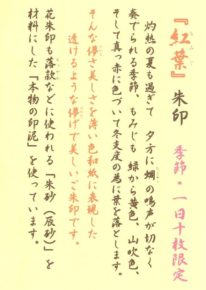 『紅葉』朱印 季節・一日十枚限定
灼熱の夏も過ぎて 夕方に蜩の鳴声が切なく
奏でられる季節、もみじも 緑から黄色、山吹色、
そして真っ赤に色づいて冬支度の為に葉を落とします。
そんな儚さ美しさを薄い色和紙に表現した
透けるような儚げで美しいご朱印です。
花朱印も落款などに使われる「朱砂(辰砂)」を
材料にした「本物の印泥」を使っています。